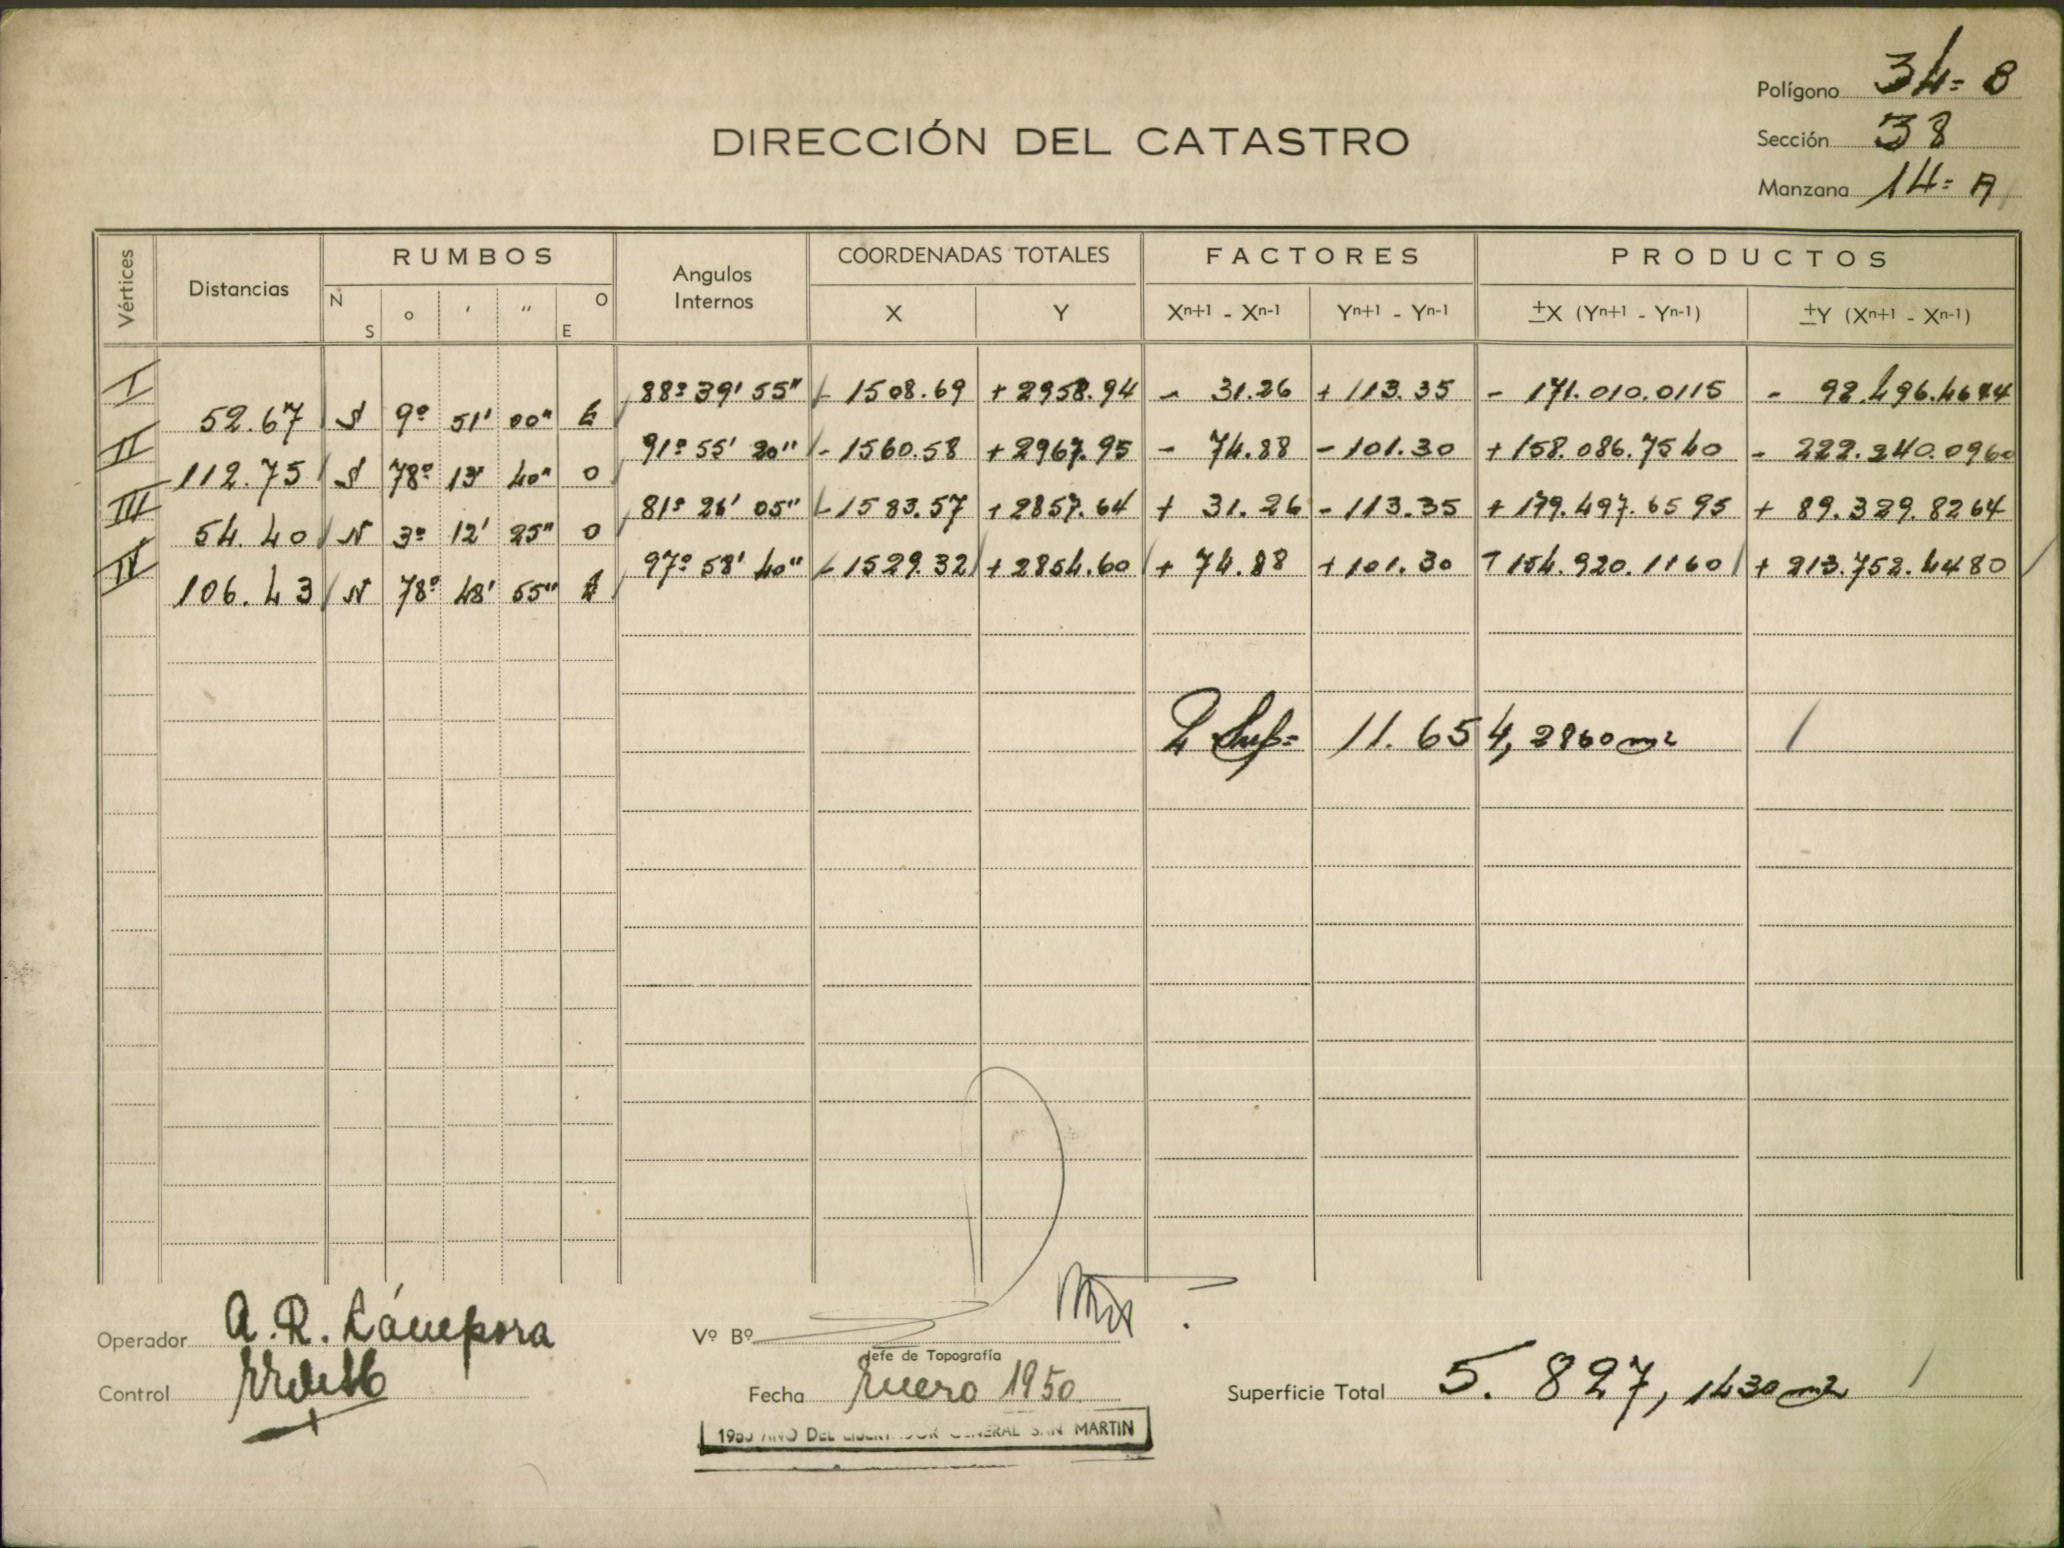 Polígono 34= B
DIRECCIÓN DEL CATASTRO
Sección 38
Manzana 14= A
Vértices Distancias RUMBOS N S ° ′ ″ O E Angulos Internos COORDENADAS TOTALES X Y FACTORES Xⁿ⁺¹ - Xⁿ⁻¹ Yⁿ⁺¹ - Yⁿ⁻¹ PRODUCTOS ±X (Yⁿ⁺¹ - Yⁿ⁻¹) ±Y (Xⁿ⁺¹ - Xⁿ⁻¹)
I 88º 39' 55" - 1508.69 + 2958.94 - 31.26 + 113.35 - 171.010.0115 - 92.496.4644
52.67 S 9º 51' 00" E
II 91º 55' 20" - 1560.58 + 2967.95 - 74.88 - 101.30 + 158.086.7540 - 222.240.0960
112.75 S 78º 13' 40" O
III 81º 26' 05" - 1583.57 + 2857.64 + 31.26 - 113.35 + 179.497.6595 + 89.329.8264
54.40 N 3º 12' 25" O
IV 97º 58' 40" - 1529.32 + 2854.60 + 74.88 + 101.30 + 154.920.1160 + 213.752.4480
106.43 N 78º 48' 55" E
2 Sup= 11.654,2860 m2
Operador A. R. Lámpora
Vº Bº
Jefe de Topografía
Control
Fecha Enero 1950
Superficie Total 5.827,1430 m2
1950 AÑO DEL LIBERTADOR GENERAL SAN MARTIN